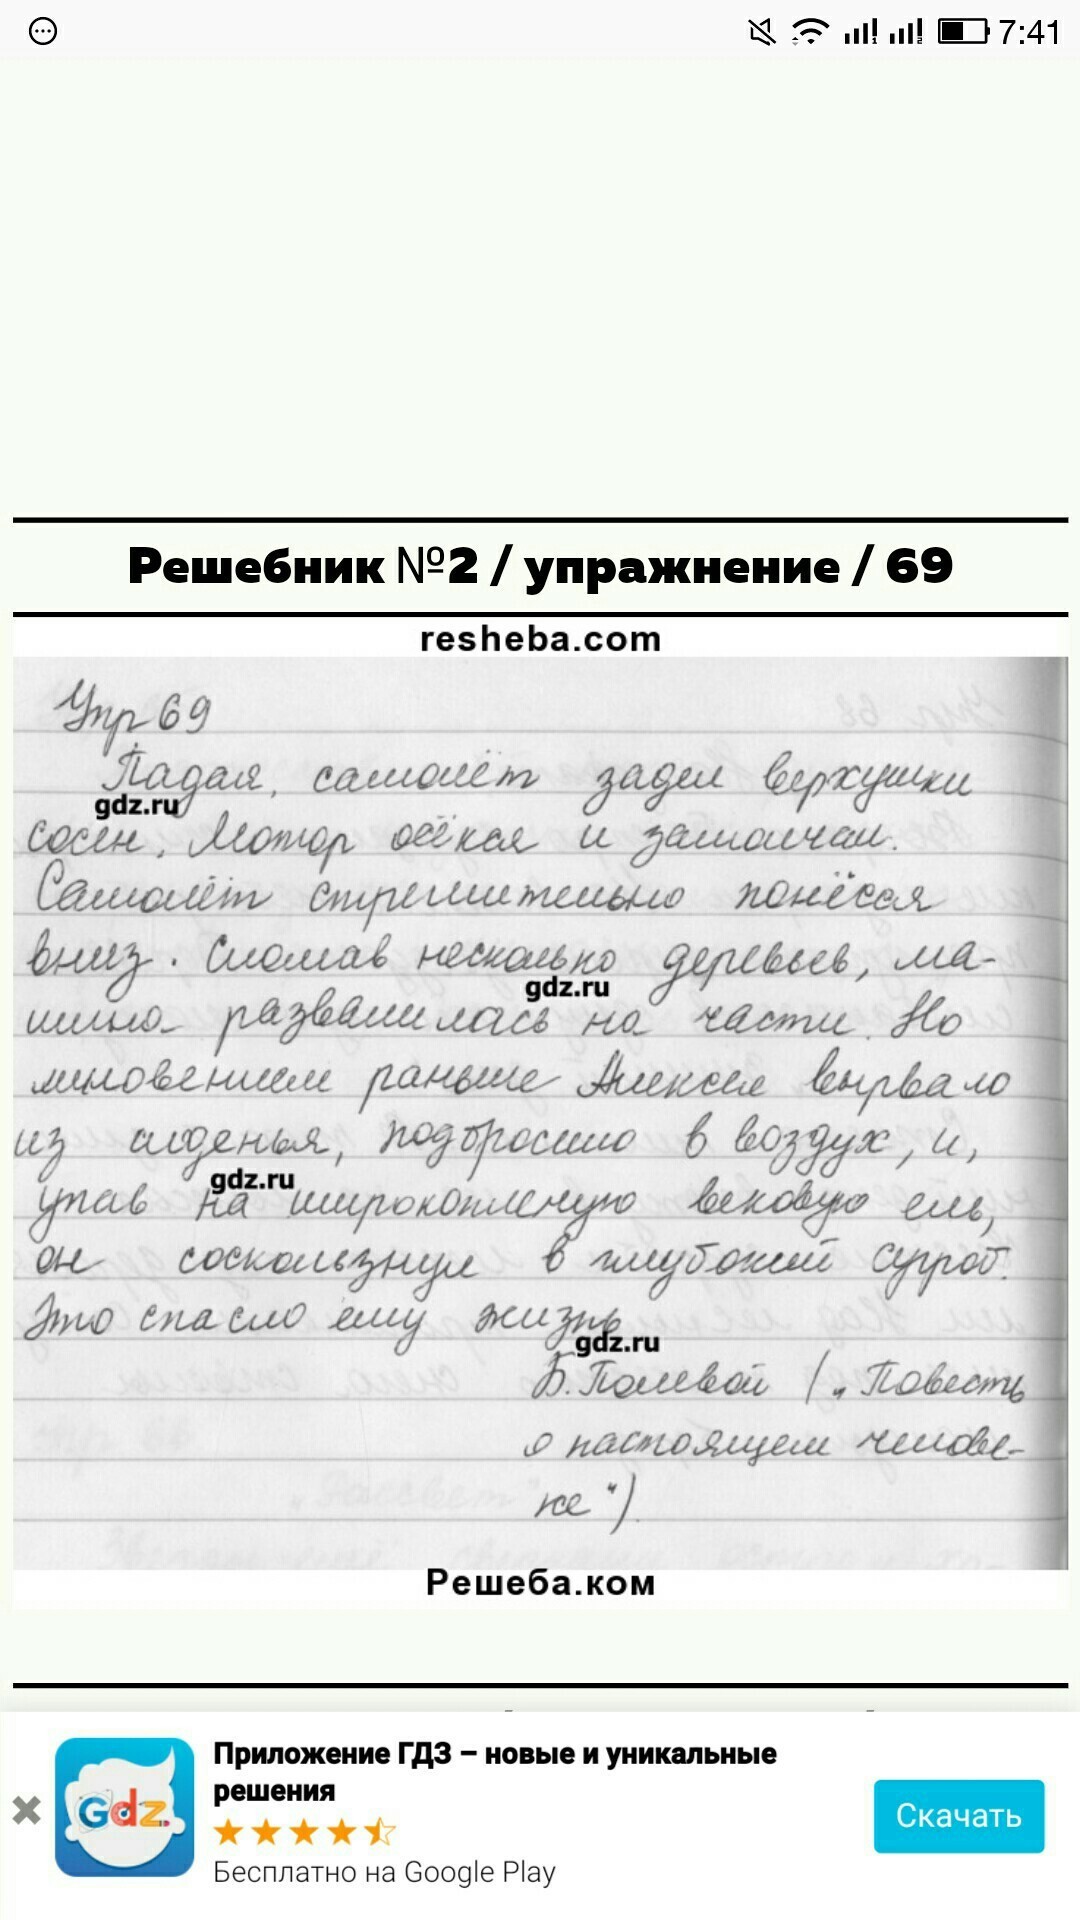 7:41
Решебник №2 / упражнение / 69
resheba.com
Упр 69
Падая, самолёт задел верхушки
gdz.ru
сосен. Мотор осёкся и замолчал.
Самолёт стремительно понёсся
вниз. Сломав несколько деревьев, ма-
gdz.ru
шина развалилась на части. Но
мгновением раньше Алексея вырвало
из сиденья, подбросило в воздух, и,
gdz.ru
упав на широкоплечую вековую ель,
он соскользнул в глубокий сугроб.
Это спасло ему жизнь
gdz.ru
Б. Полевой („Повесть
о настоящем челове-
ке").
Решеба.ком
Приложение ГДЗ – новые и уникальные
решения
Gdz.
Скачать
Бесплатно на Google Play